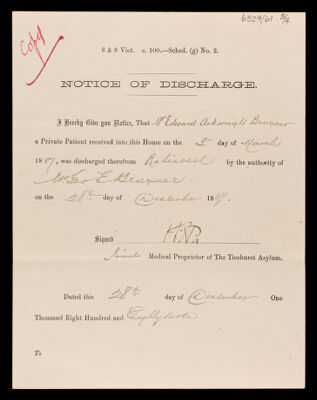 6329/61 3/4
Copy
8 & 9 Vict. c. 100.—Sched. (g) No. 2.
NOTICE OF DISCHARGE.
I Hereby Give you Notice, That Mr Edward Arkwright Bruxner
a Private Patient received into this House on the day of March
188, was discharged therefrom Relieved by the authority of
Mr Geo E Bruxner
on the 28th day of December 188.
Signed
Joint Medical Proprietor of The Ticehurst Asylum.
Dated this 28th day of December One
Thousand Eight Hundred and Eighty
To